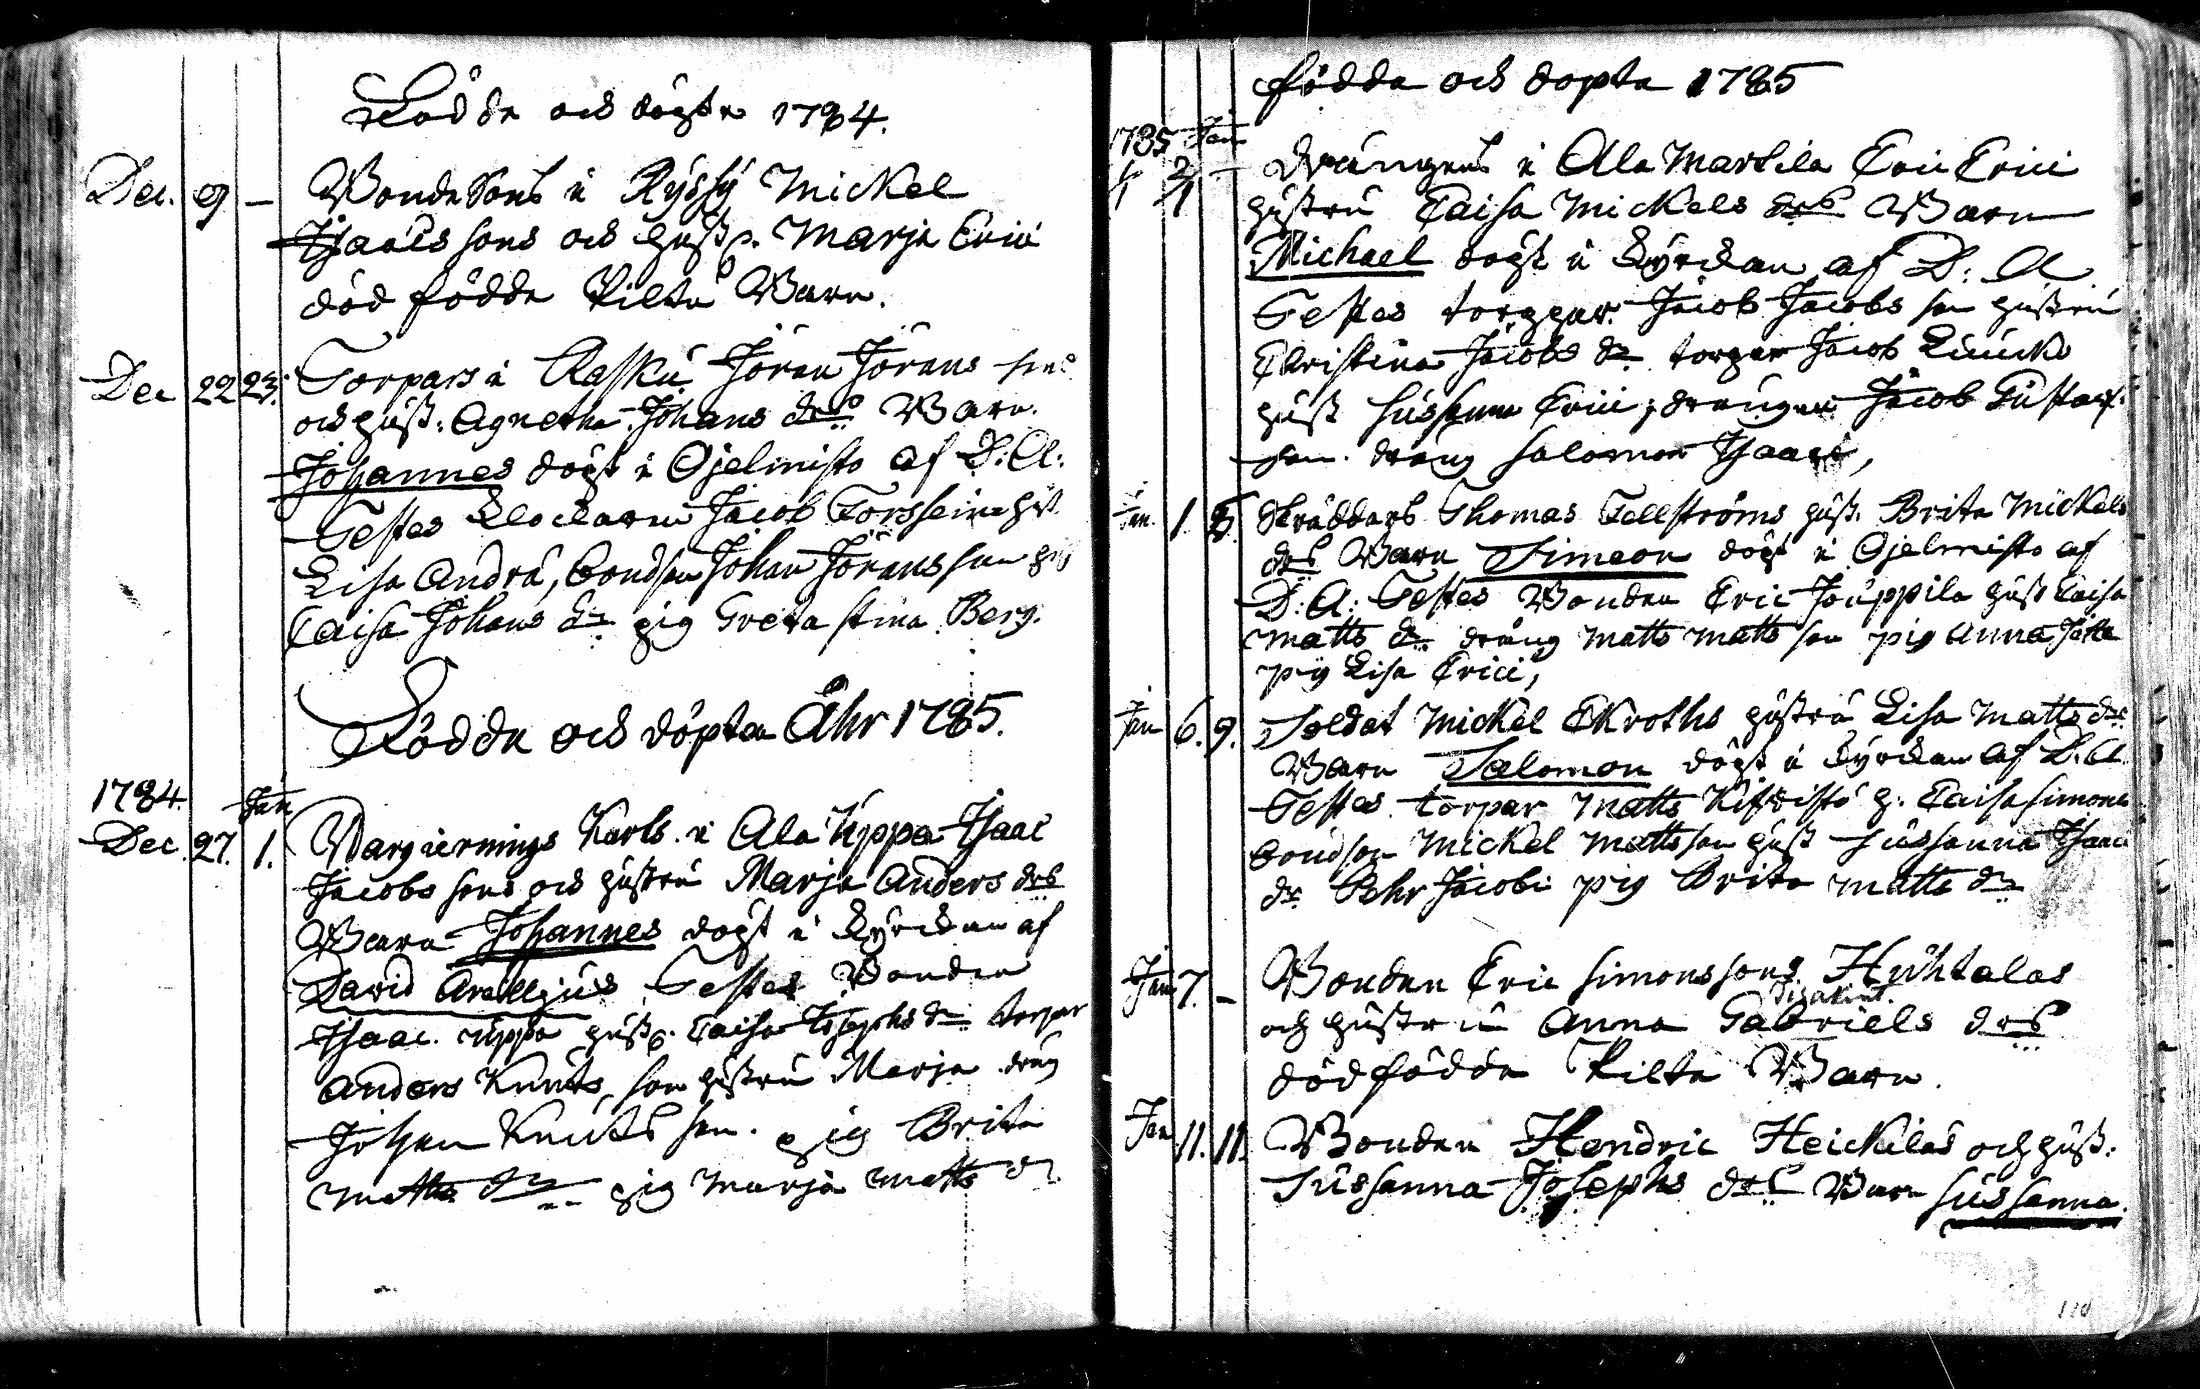 Födde och döpte 1784.
Dec. 9 — Bonde Sons i Ryssy Mickel
Isaacs sons och hust. Marja Erici
död födde Pilta Barn.
Dec 22 23. Torpars i Rasku Jöran Jörans sons
och hust: Agnetha Johans drs Barn.
Johannes döpt i Gjelmisto af D: A:
Testes Klockaren Jacob Forsseim hust
Lisa Andrä, bondson Johan Jöransson pig
Caisa Johans dr pig Greta Stina Berg.
Födde och döpta Åhr 1785.
1784. Jan
Dec. 27. 1. Vargierings Karls i Ala Uppa Isaac
Jacobs sons och hustru Marja Anders drs
Barn Johannes döpt i Kyrckan af
David Arellius Testes Bonden
Isaac Uppa hust. Caisa Josephs dr torpar
Anders Knuts son hustru Marja dräng
Johan Knuts son. pig Brita
Matts dr pig Marja Matts dr
födda och döpta 1785
1785 Jan
1/1 2/1 — Drängens i Ala Martila Eric Erici
hustru Caisa Mickels drs Barn
Michael döpt i Kyrckan af D: A
Testes torppar. Jacob Jacobs son hustru
Christina Jacobs dr torpar Jacob
hust Sussanna Erici, drängen Jacob Gustaf
son. dräng Salomon Isaacs,
Jan. 1. 5. Skräddars Thomas Fellströms hust. Brita Mickels
drs Barn Simeon döpt i Gjelmisto af
D: A: Testes Bonden Eric Jouppila hust Caisa
Matts dr dräng Matts Matts son pig Anna
pig Lisa Erici,
Jan 6. 9. Soldat Mickel Ekroths hustru Lisa Matts drs
Barn Salomon döpt i Kyrckan af D. A
Testes torpar Matts h. Caisa Simons
bondson Mickel Mattsson hust Sussanna Isaacs
dr Pehr Jacobi pig Brita Matts dr
Jan 7. — Bonden Eric Simonssons Huhtalas
och hustru Anna Gabriels drs
dödfödda Pilta Barn.
Jan 11. 11. Bonden Hendric Heickilas och hust.
Sussanna Josephs drs Barn Sussanna.
110